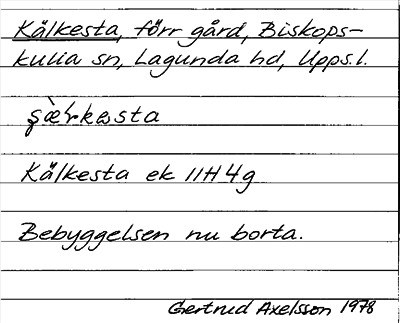 Kälkesta, förr gård, Biskops-
kulla sn, Lagunda hd, Upps.l.
Kälkesta ek 11H4g
Bebyggelsen nu borta.
Gertrud Axelsson 1978